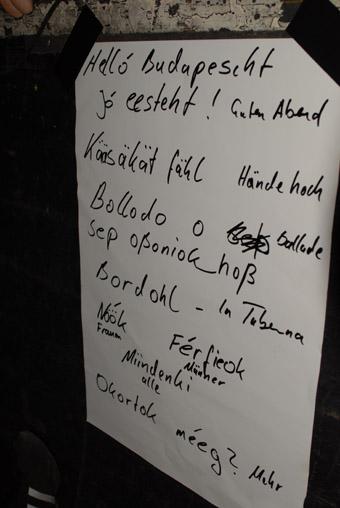 Helló Budapescht
jó eesteht! Guten Abend
Kääsäkät fähl Hände hoch
Bollodo o Ballade
sep oßoniok hoß
Bordohl - In Taberna
Nöök Férfieok
Frauen Männer
Miindenki
alle
Okortok méeg? Mehr